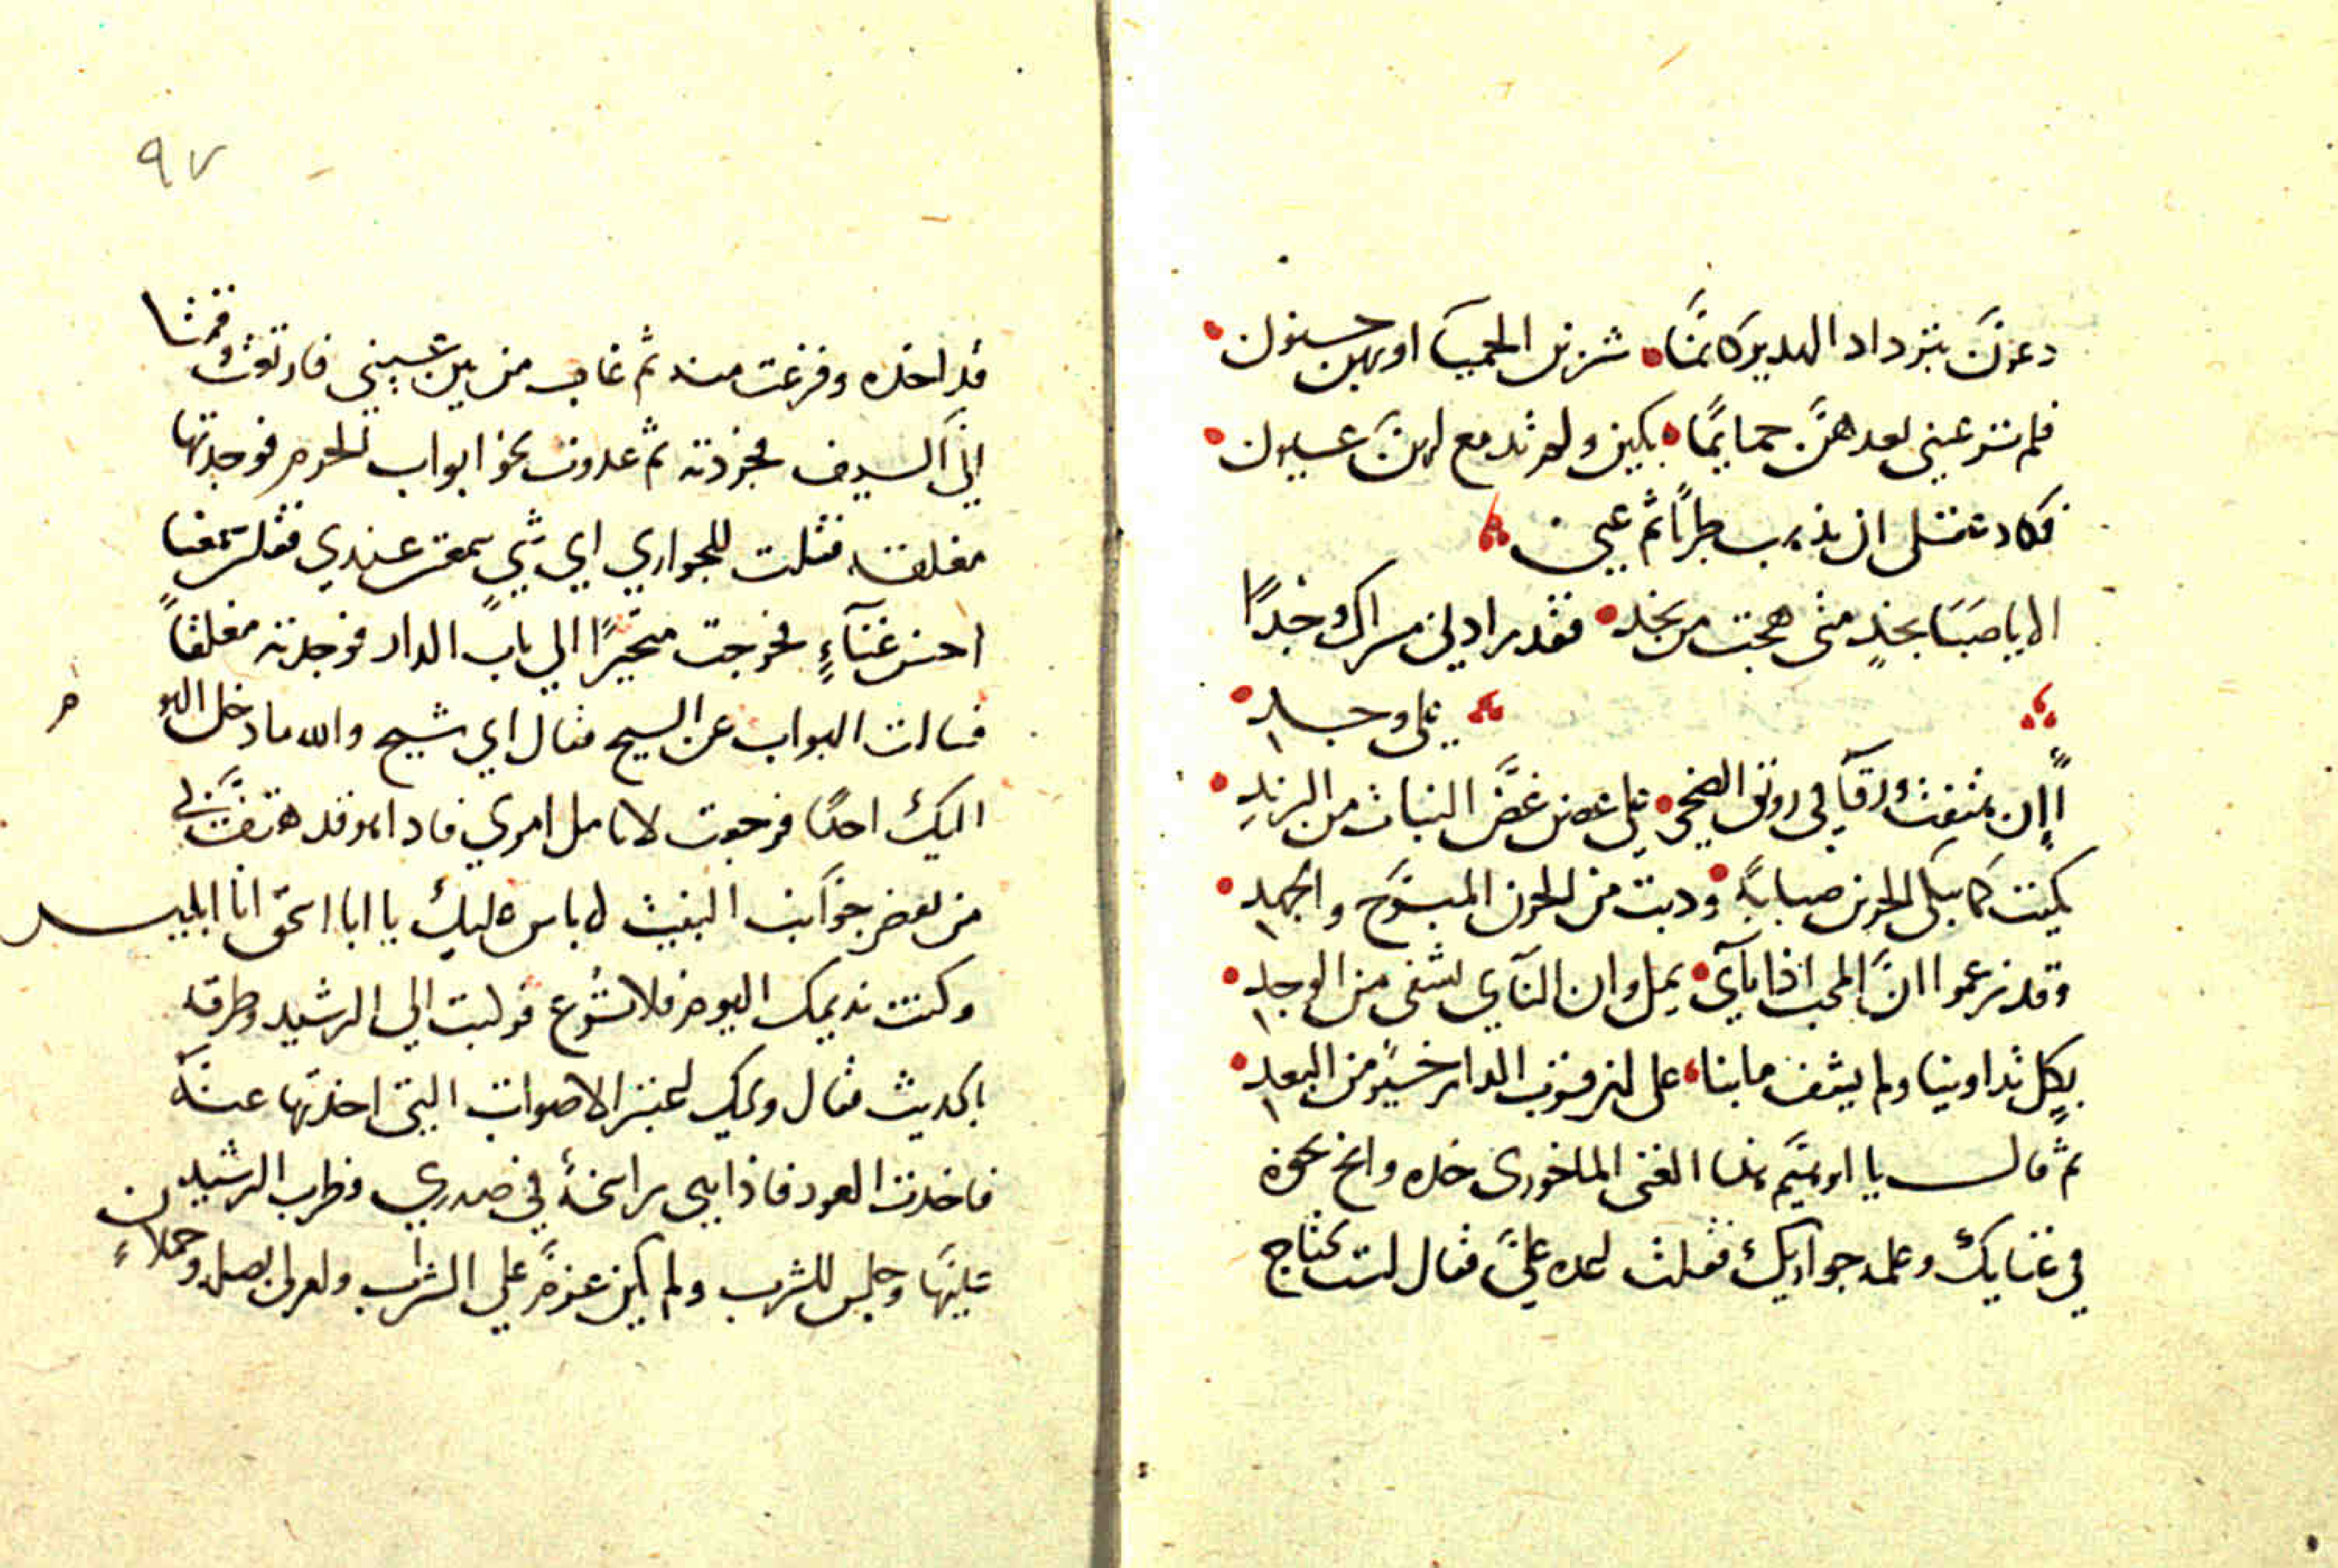 دعون بترداد الهدير كانما شربن الحميا او بهن جنون
فلم تر عيني بعدهن حمايما بكين ولم تدمع لهن عيون
فكادت نفسي ان تذهب طربا ثم غنى
الا يا صبا نجد متى هجت من نجد فقد زادني مسراك وجدا
على وجد
أإن هتفت ورقا في رونق الضحى على غصن غض النبات من الرند
بكيت كما يبكي الحزين صبابة وذبت من الحزن المبرح والجهد
وقد زعموا ان المحب اذا نآى يمل وان النآي يشفي من الوجد
بكل تداوينا ولم يشف ما بنا على ان قرب الدار خير من البعد
ثم قال يا ابرهيم هذا الغنى الماخوري خذه وانح نحوه
في غنايك وعلمه جواريك فقلت اعده علي فقال لست تحتاج
٩٧
قد اخذه وفرغت منه ثم غاب من بين عيني فارتعت فقمت
الى السيف فجردته ثم عدوت نحو ابواب الحرم فوجدتها
مغلقة فقلت للجواري اي شي سمعتن عندي فقلن سمعنا
احسن غنآء فخرجت متحيرا الي باب الدار فوجدته مغلقا
فسالت البواب عن الشيخ فقال اي شيخ والله ما دخل اليوم
اليك احدا فرجعت لاتامل امري فاذا هو قد هتف بي
من بعض جوانب البيت لا باس عليك يا ابا اسحق انا ابليس
وكنت نديمك اليوم فلا تُرع فركبت الي الرشيد وطرفته
بالحديث فقال ويحك اعتبر الاصوات التي اخذتها عنه
فاخذت العود فاذا هي راسخة في صدري فطرب الرشيد
عليها وجلس للشرب ولم يكن عزم علي الشراب وامر لي بصلة وحملان